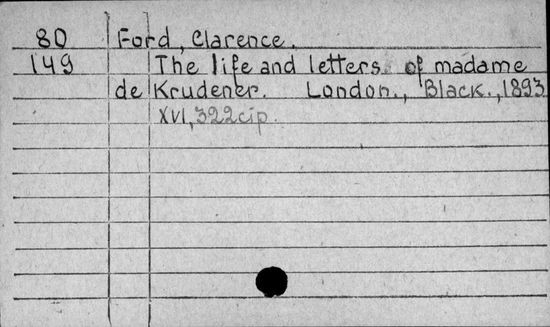 80 Ford, Clarence.
149 The life and letters of madame
de Krudener. London., Black., 1893
XVI, 322 cip.